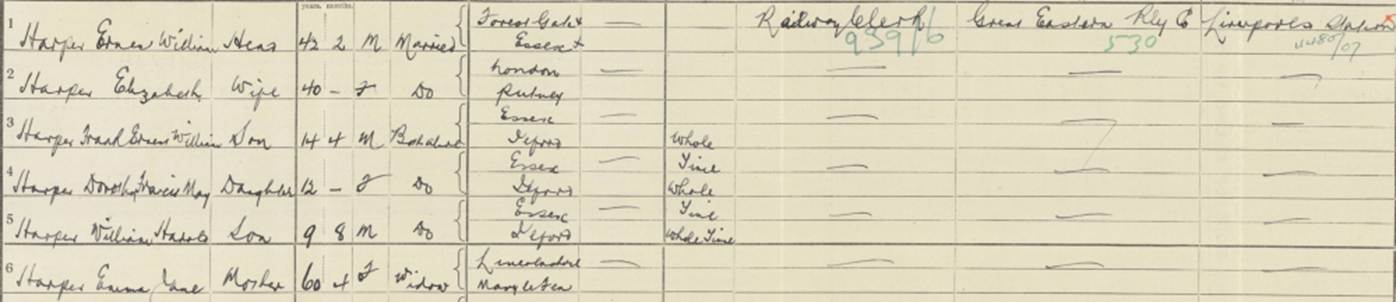 years. months.
1 Harper Ernest William Head 42 2 M Married Forest Gate Essex Railway Clerk 939/6 Great Eastern Rly Co 530 Liverpool Station
2 Harper Elizabeth Wife 40 - F Do London Putney
3 Harper Frank Ernest William Son 14 4 M Bachelor Essex Ilford Whole Time
4 Harper Dorothy Francis May Daughter 12 - F Do Essex Ilford Whole Time
5 Harper William Harold Son 9 8 M Do Essex Ilford Whole Time
6 Harper Emma Jane Mother 60 4 F Widow Lincolnshire